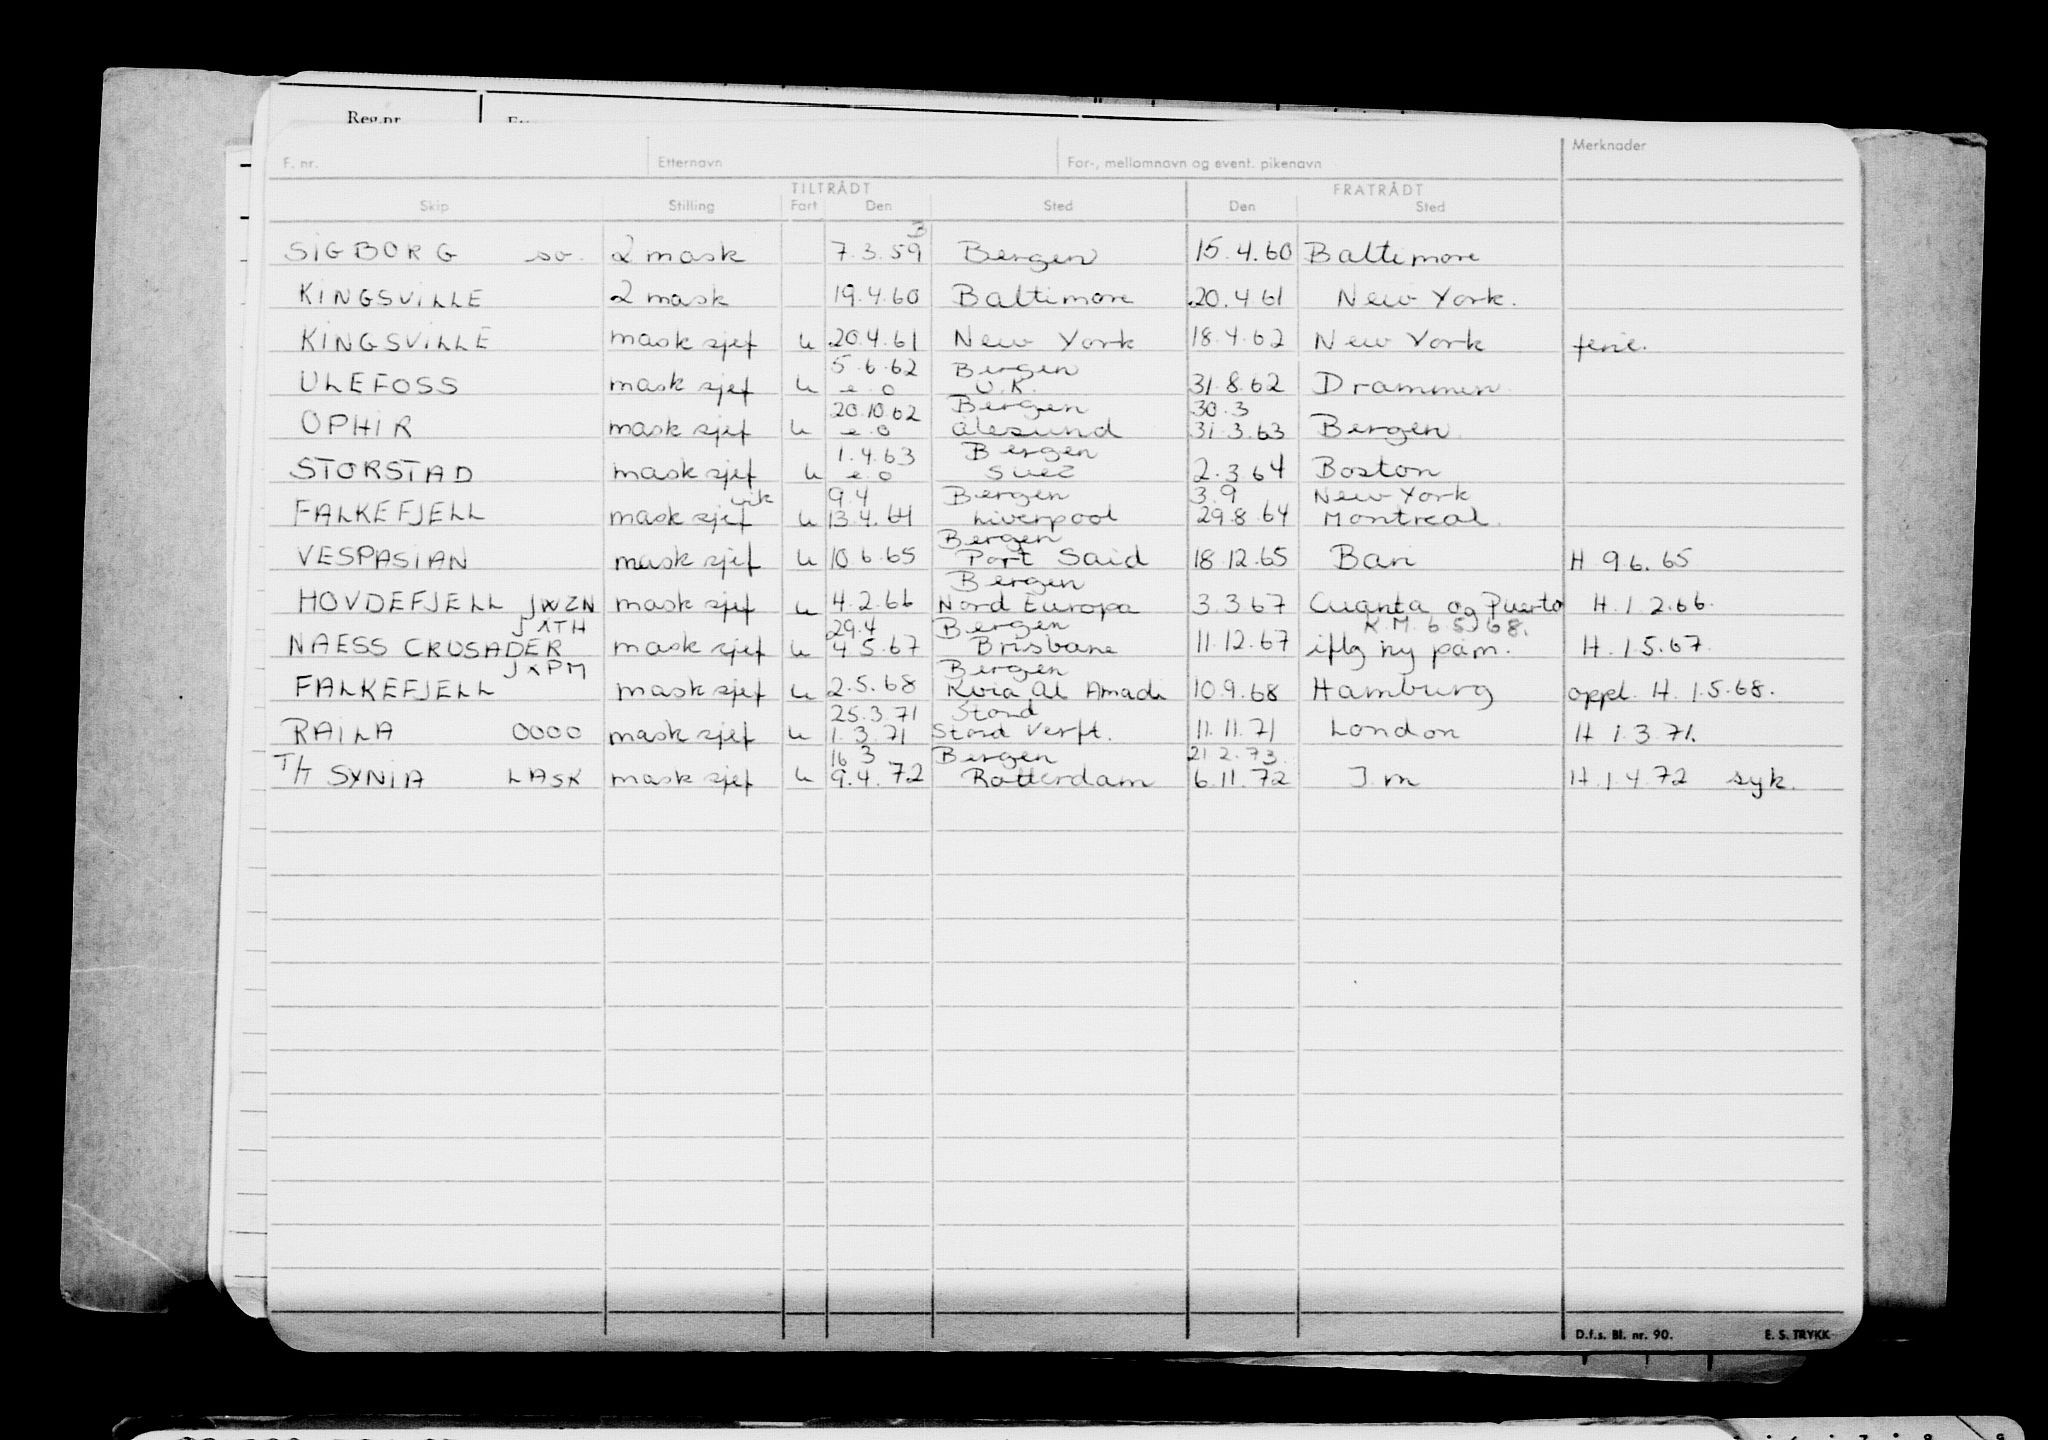 Reg.nr.
F. nr. Etternavn For-, mellomnavn og event. pikenavn Merknader
TILTRÅDT FRATRÅDT
Skip Stilling Fart Den Sted Den Sted
3
SIGBORG so. 2 mask 7.3.59 Bergen 15.4.60 Baltimore
KINGSVILLE 2 mask 19.4.60 Baltimore 20.4.61 New York.
KINGSVILLE mask sjef u 20.4.61 New York 18.4.62 New York ferie.
5.6.62 Bergen
ULEFOSS mask sjef u e.o U.K. 31.8.62 Drammen.
20.10.62 Bergen 30.3
OPHIR mask sjef u e.o Ålesund 31.3.63 Bergen.
1.4.63 Bergen
STORSTAD mask sjef u e.o Suez 2.3.64 Boston
vik 9.4 Bergen 3.9 New York
FALKEFJELL mask sjef u 13.4.64 Liverpool 29.8.64 Montreal.
Bergen
VESPASIAN mask sjef u 10.6.65 Port Said 18.12.65 Bari H 9.6.65
Bergen
HOVDEFJELL JWZN mask sjef u 4.2.66 Nord Europa 3.3.67 Cuanta og Puerto H.1.2.66.
JXTH 29.4 Bergen K.M. 6.5.68.
NAESS CRUSADER mask sjef u 4.5.67 Brisbane 11.12.67 iflg ny påm. H.1.5.67.
JXPM Bergen
FALKEFJELL mask sjef u 2.5.68 Kvia Al Amadi 10.9.68 Hamburg oppl. H.1.5.68.
25.3.71 Stord
RAILA OOOO mask sjef u 1.3.71 Stord Verft. 11.11.71 London H 1.3.71.
16.3 Bergen 21.2.73.
T/T SYNIA LASK mask sjef u 9.4.72 Rotterdam 6.11.72 I.m H.1.4.72 syk.
D.f.s. Bl. nr. 90. E. S. TRYKK